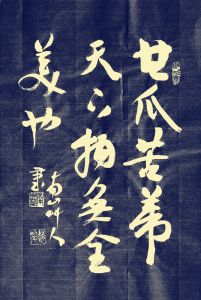 甘瓜苦蒂
天下物無全
美也